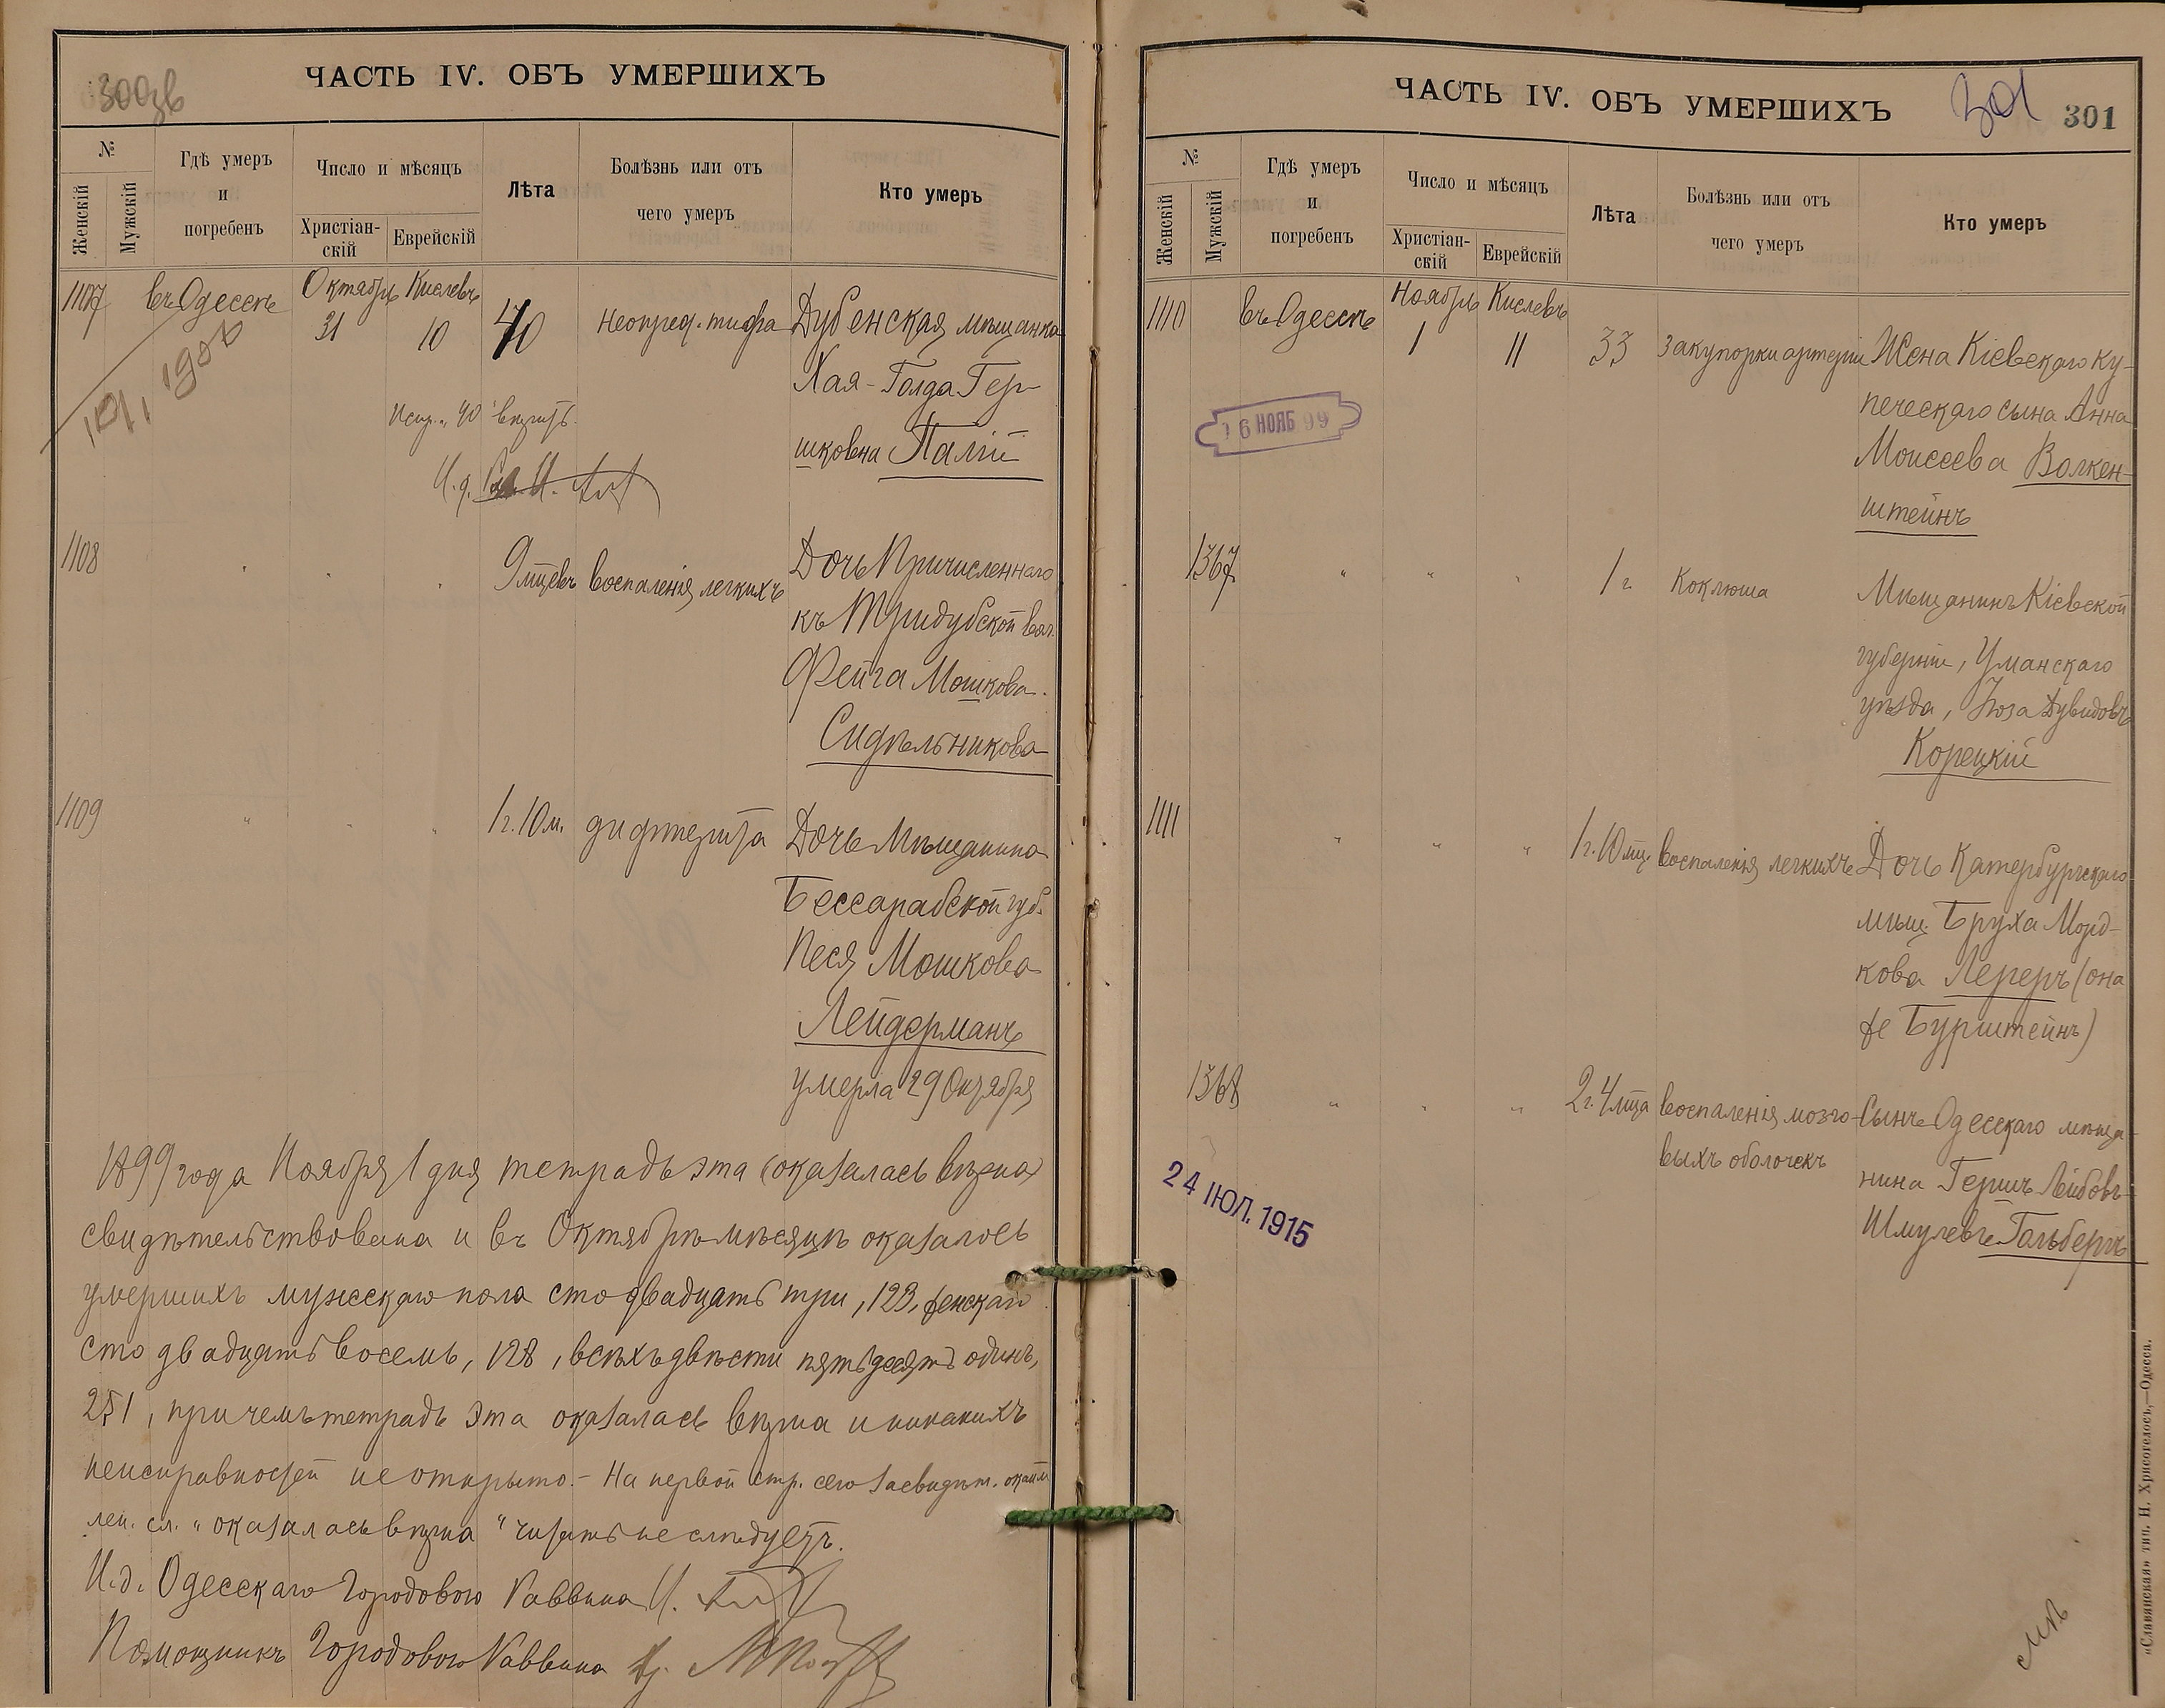 300зв
ЧАСТЬ IV. ОБЪ УМЕРШИХЪ
№
Женскій
Мужскій
Гдѣ умеръ
и
погребенъ
Число и мѣсяцъ
Христіан-
скій
Еврейскій
Лѣта
Болѣзнь или отъ
чего умеръ
Кто умеръ
1107
въ Одессѣ
Октябрь
31
Кислевъ
10
40
Неопред. тифа
Дубенская мѣщанка
Хая-Голда Гер-
шковна Палій
1900
Испр. „40" вѣрить.
И.д.
1108
9 мцевъ
воспаленія легкихъ
Дочь Причисленнаго
къ Тридубской вол.
Фейга Мошкова
Сидѣльникова
1109
1 г. 10 м.
дифтерита
Дочь Мѣщанина
Бессарабской губ.
Песя Мошкова
Лейдерманъ
умерла 29 Октября
1899 года Ноября 1 дня тетрадь эта (оказалась вѣрна)
свидѣтельствована и въ Октябрѣ мѣсяцѣ оказалось
умершихъ мужескаго пола сто двадцать три, 123, женскаго
сто двадцать восемь, 128, всѣхъ двѣсти пятьдесятъ одинъ,
251, при чемъ тетрадь эта оказалась вѣрна и никакихъ
неисправностей не открыто.- На первой стр. сего засвидѣт.
сл. „оказалась вѣрна" читать не слѣдуетъ.
И.д. Одесскаго Городового Раввина
Помощникъ Городового Раввина
ЧАСТЬ IV. ОБЪ УМЕРШИХЪ
301
301
№
Женскій
Мужскій
Гдѣ умеръ
и
погребенъ
Число и мѣсяцъ
Христіан-
скій
Еврейскій
Лѣта
Болѣзнь или отъ
чего умеръ
Кто умеръ
1110
въ Одессѣ
Ноябрь
1
Кислевъ
11
33
закупорки артеріи
Жена Кіевскаго ку-
печескаго сына Анна
Моисеева Волкен-
штейнъ
16 НОЯБ 99
1367
1 г.
Коклюша
Мѣщанинъ Кіевской
губерніи, Уманскаго
уѣзда, Дувидовъ
Корецкій
1111
1 г. 10 мц.
воспаленія легкихъ
Дочь Катербургскаго
мѣщ. Бруха Морд-
кова Лереръ (она
же Бурштейнъ)
1368
2 г. 4 мца
воспаленія мозго-
выхъ оболочекъ
Сынъ Одесскаго мѣща-
нина Гершъ Лейбовъ-
Шмулевъ Гольбергъ
24 ІЮЛ. 1915
«Славянская» тип. Н. Хрисогелосъ,—Одесса.